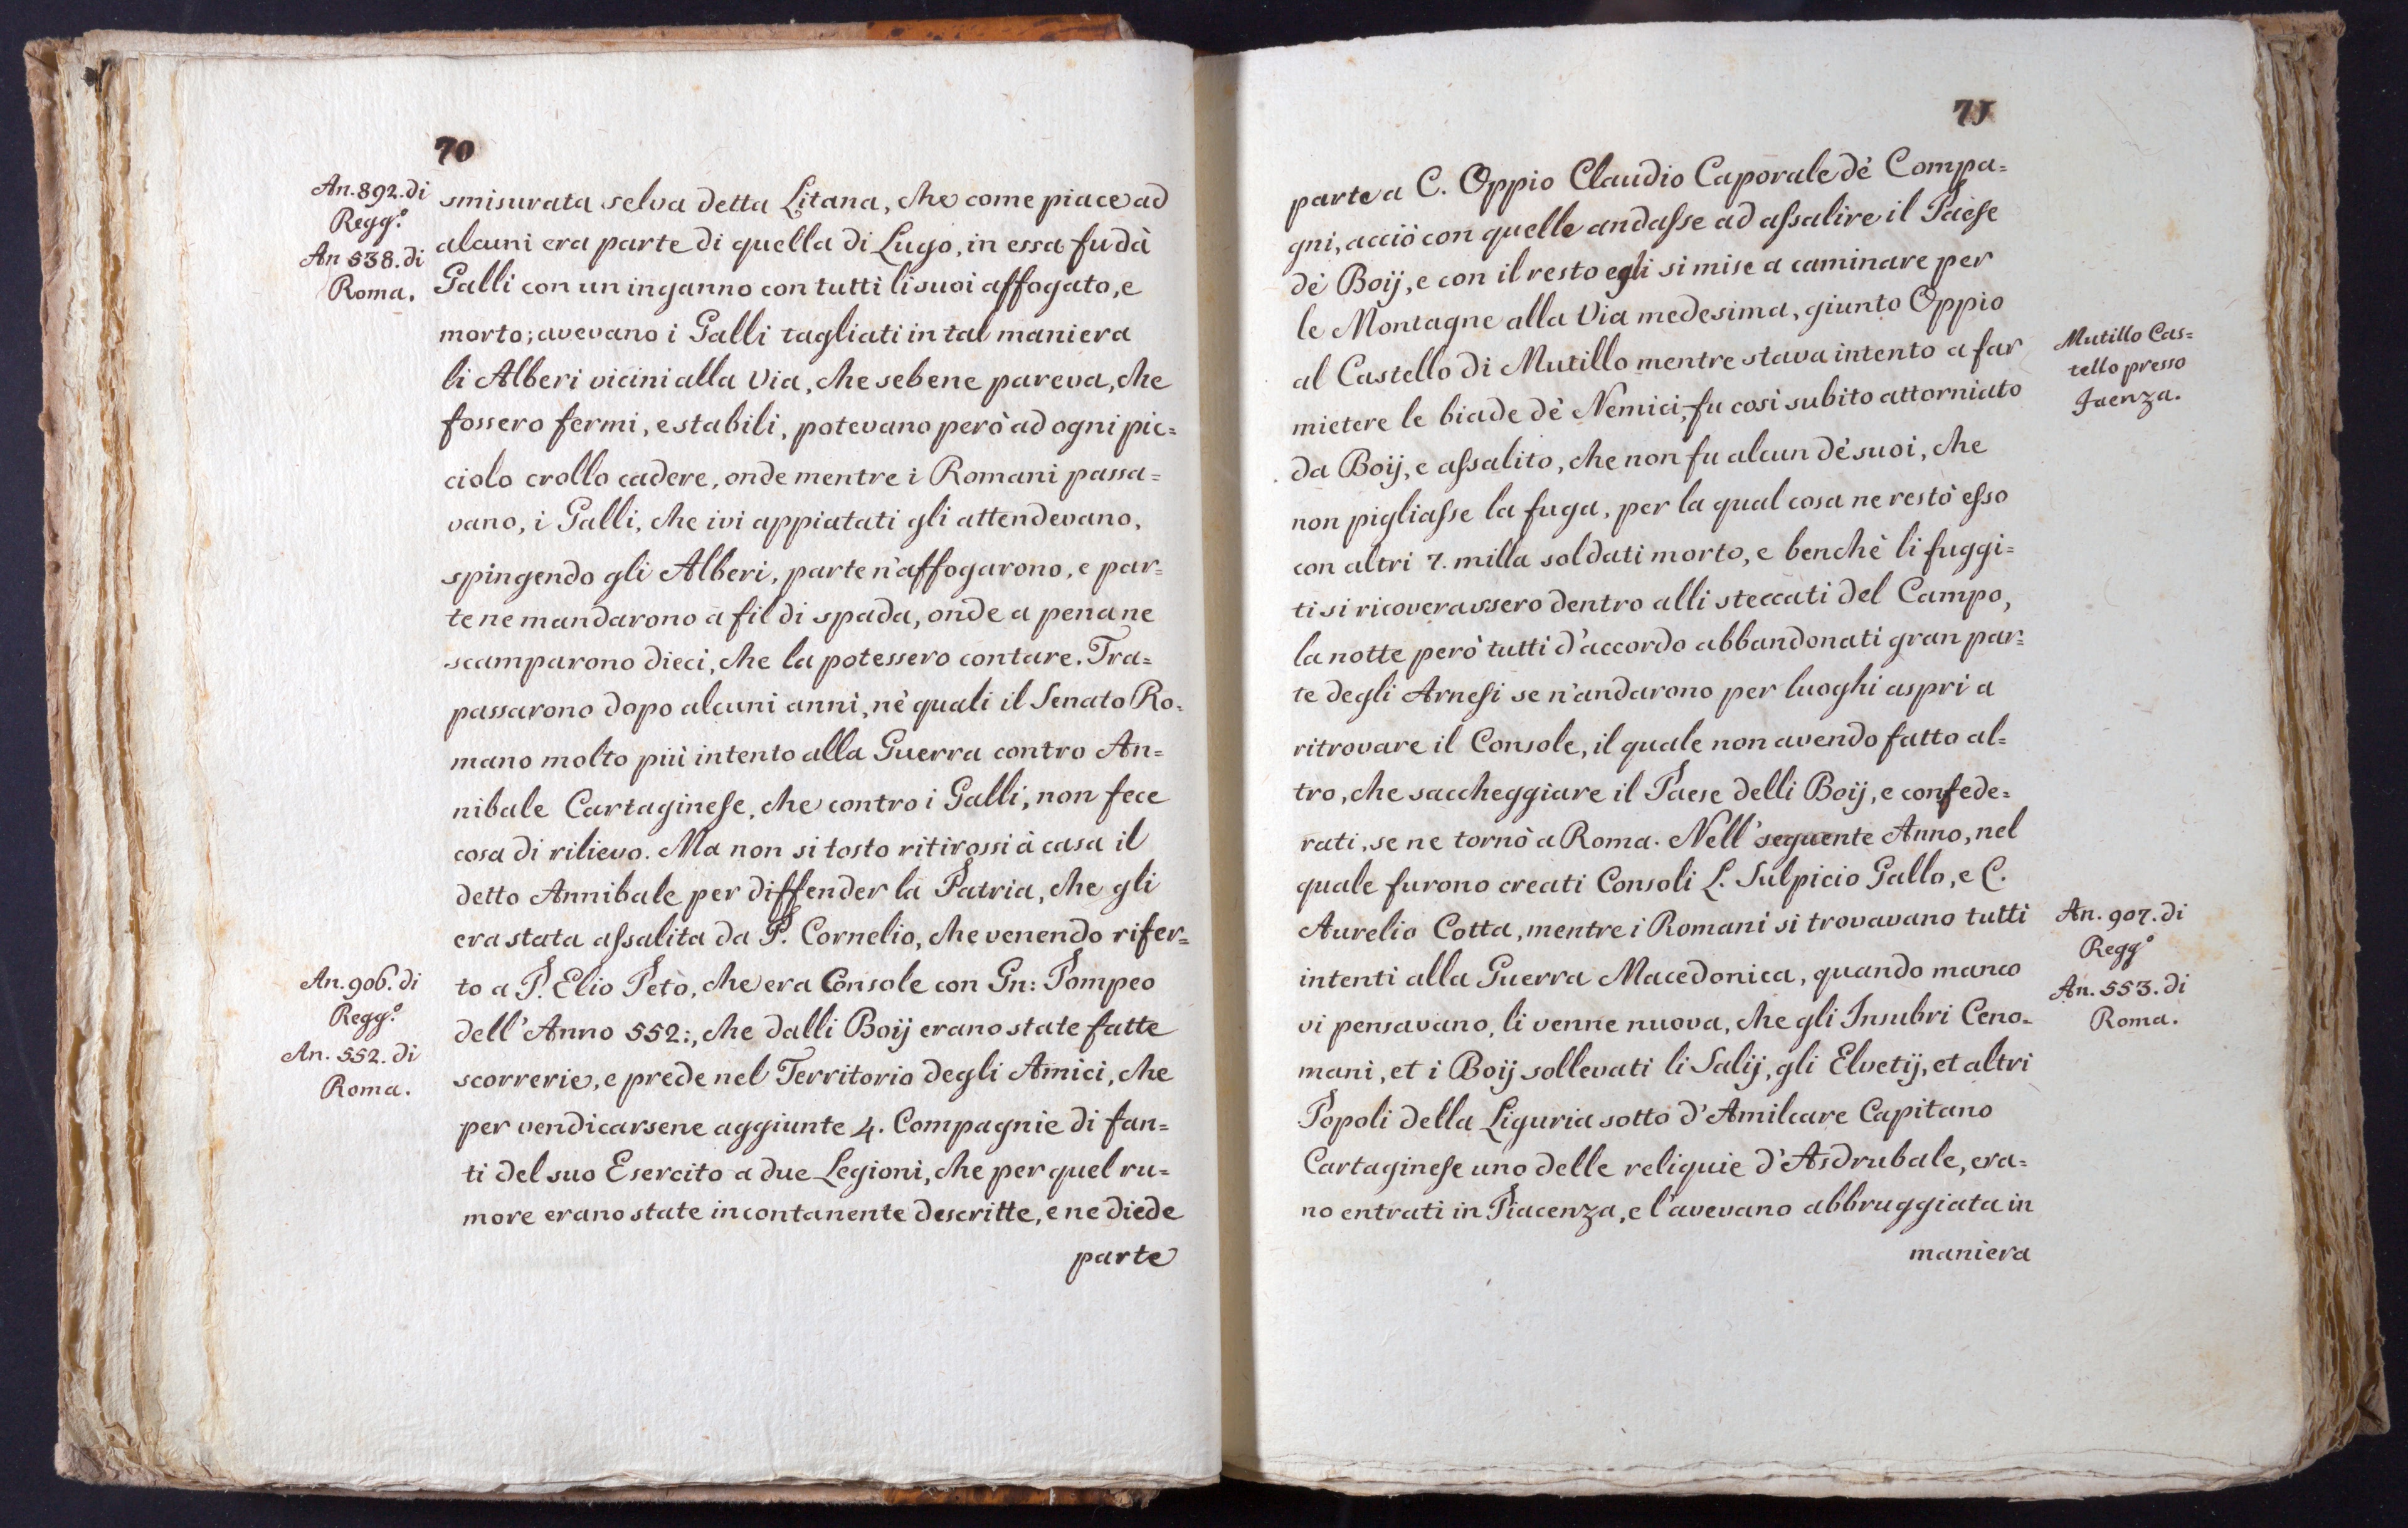 70
An. 892. di
Regg.º
An 538. di
Roma.
smisurata selva detta Litana, che come piace ad
alcuni era parte di quella di Lugo, in essa fu dà
Galli con un inganno con tutti li suoi affogato, e
morto; avevano i Galli tagliati in tal maniera
li Alberi vicini alla Via, che sebene pareva, che
fossero fermi, e stabili, potevano però ad ogni pic=
ciolo crollo cadere, onde mentre i Romani passa=
vano, i Galli, che ivi appiatati gli attendevano,
spingendo gli Alberi, parte n'affogarono, e par=
te ne mandarono a fil di spada, onde a pena ne
scamparono dieci, che la potessero contare. Tra=
passarono dopo alcuni anni, nè quali il Senato Ro=
mano molto più intento alla Guerra contro An=
nibale Cartaginese, che contro i Galli, non fece
cosa di rilievo. Ma non si tosto ritirossi à casa il
detto Annibale per diffender la Patria, che gli
era stata assalita da P. Cornelio, che venendo rifer=
An. 906. di
Regg.º
An. 552. di
Roma.
to a P. Elio Peto, che era Console con Gn: Pompeo
dell'Anno 552:, che dalli Boij erano state fatte
scorrerie, e prede nel Territorio degli Amici, che
per vendicarsene aggiunte 4. Compagnie di fan=
ti del suo Esercito a due Legioni, che per quel ru=
more erano state incontanente descritte, e ne diede
parte
71
parte a C. Oppio Claudio Caporale dè Compa=
gni, acciò con quelle andasse ad assalire il Paese
dè Boij, e con il resto egli si mise a caminare per
le Montagne alla Via medesima, giunto Oppio
al Castello di Mutillo mentre stava intento a far
Mutillo Cas=
tello presso
Faenza.
mietere le biade dè Nemici, fu così subito attorniato
da Boij, e assalito, che non fu alcun dè suoi, che
non pigliasse la fuga, per la qual cosa ne restò esso
con altri 7. milla soldati morto, e benchè li fuggi=
ti si ricoverassero dentro alli steccati del Campo,
la notte però tutti d'accordo abbandonati gran par=
te degli Arnesi se n'andarono per luoghi aspri a
ritrovare il Console, il quale non avendo fatto al=
tro, che saccheggiare il Paese delli Boij, e confede=
rati, se ne tornò a Roma. Nell'seguente Anno, nel
quale furono creati Consoli L. Sulpicio Gallo, e C.
Aurelio Cotta, mentre i Romani si trovavano tutti
An. 907. di
Regg.º
An. 553. di
Roma.
intenti alla Guerra Macedonica, quando manco
vi pensavano, li venne nuova, che gli Insubri Ceno=
mani, et i Boij sollevati li Salij, gli Elvetij, et altri
Popoli della Liguria sotto d'Amilcare Capitano
Cartaginese uno delle reliquie d'Asdrubale, era=
no entrati in Piacenza, e l'avevano abbruggiata in
maniera